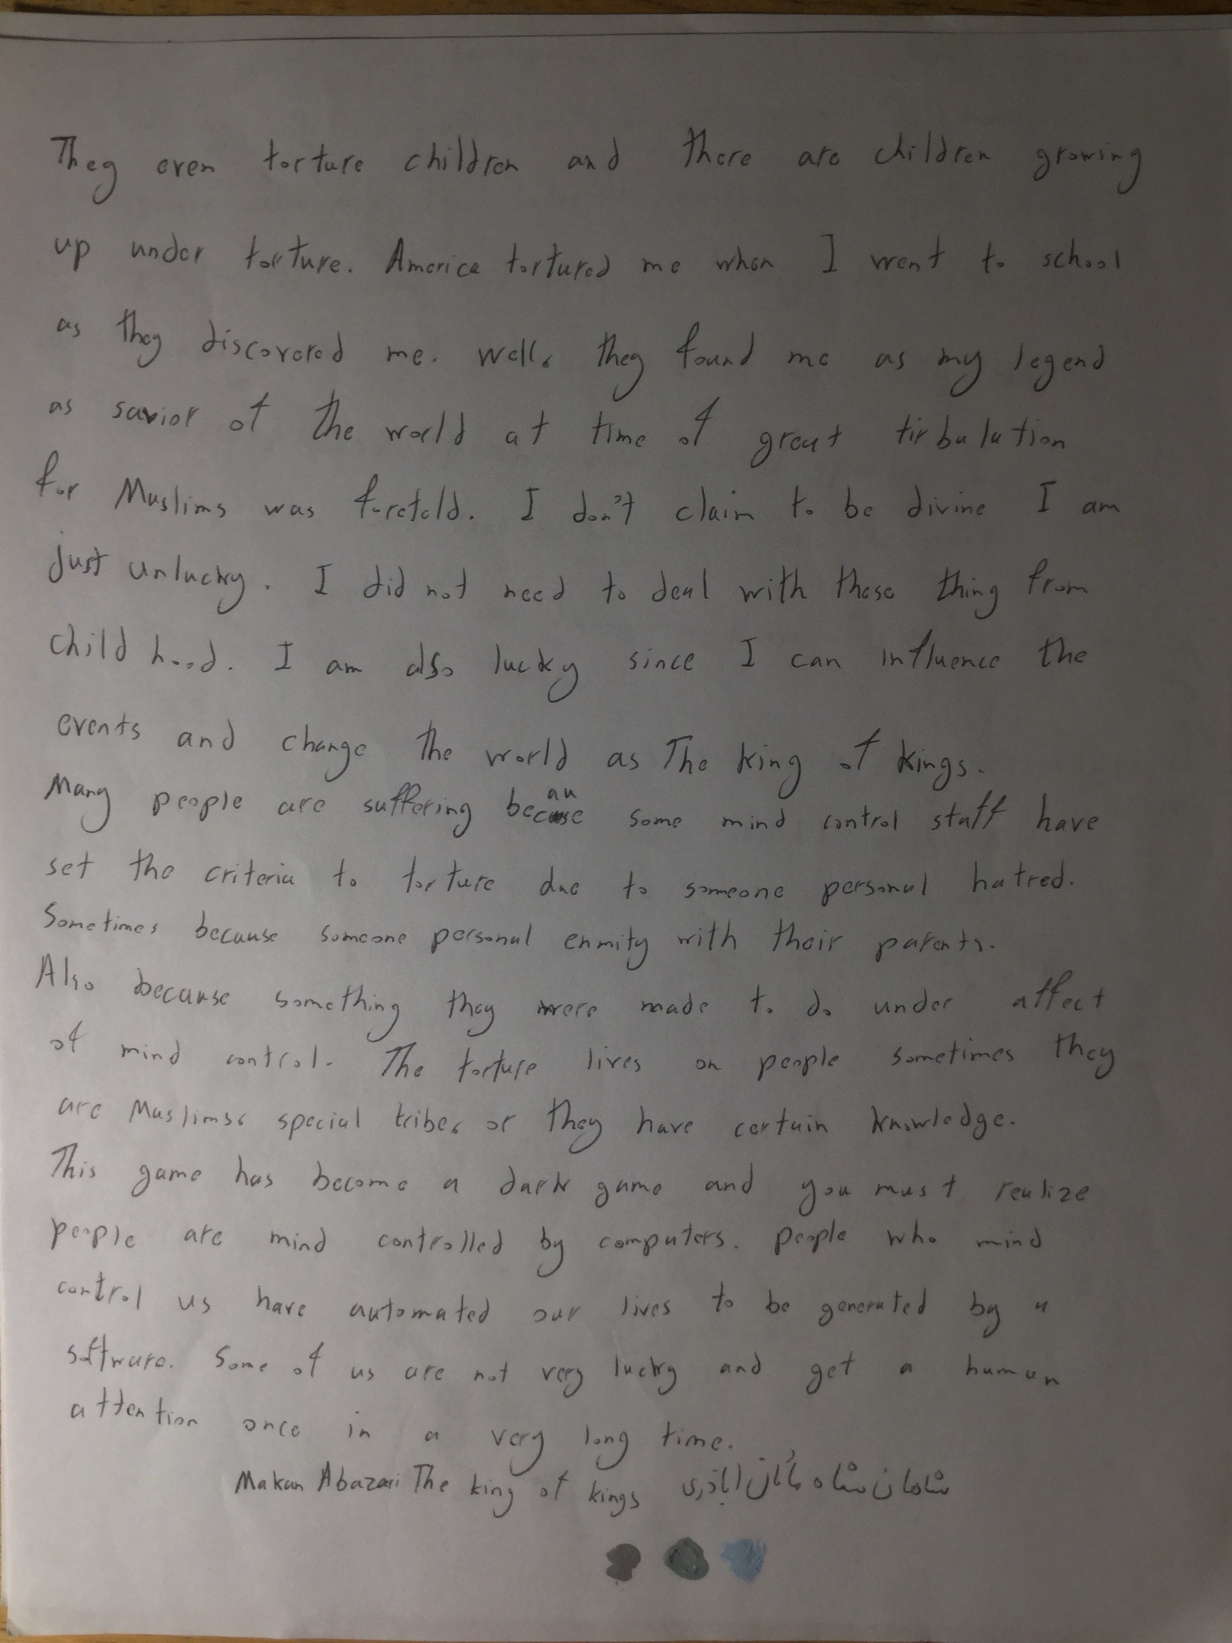 They even torture children and there are children growing
up under torture. America tortured me when I went to school
as they discovered me. Well, they found me as my legend
as savior of the world at time of great tirbulation
for Muslims was foretold. I don't claim to be divine I am
just unlucky. I did not need to deal with these thing from
child hood. I am also lucky since I can influence the
events and change the world as The king of kings.
Many people are suffering because some mind control staff have
set the criteria to torture due to someone personal hatred.
Sometimes because someone personal enmity with their parents.
Also because something they were made to do under affect
of mind control. The torture lives on people sometimes they
are Muslims, special tribes or they have certain knowledge.
This game has become a dark game and you must realize
people are mind controlled by computers. people who mind
control us have automated our lives to be generated by a
software. Some of us are not very lucky and get a human
attention once in a very long time.
Makan Abazari The king of kings شاهان شاه ماکان اباذری